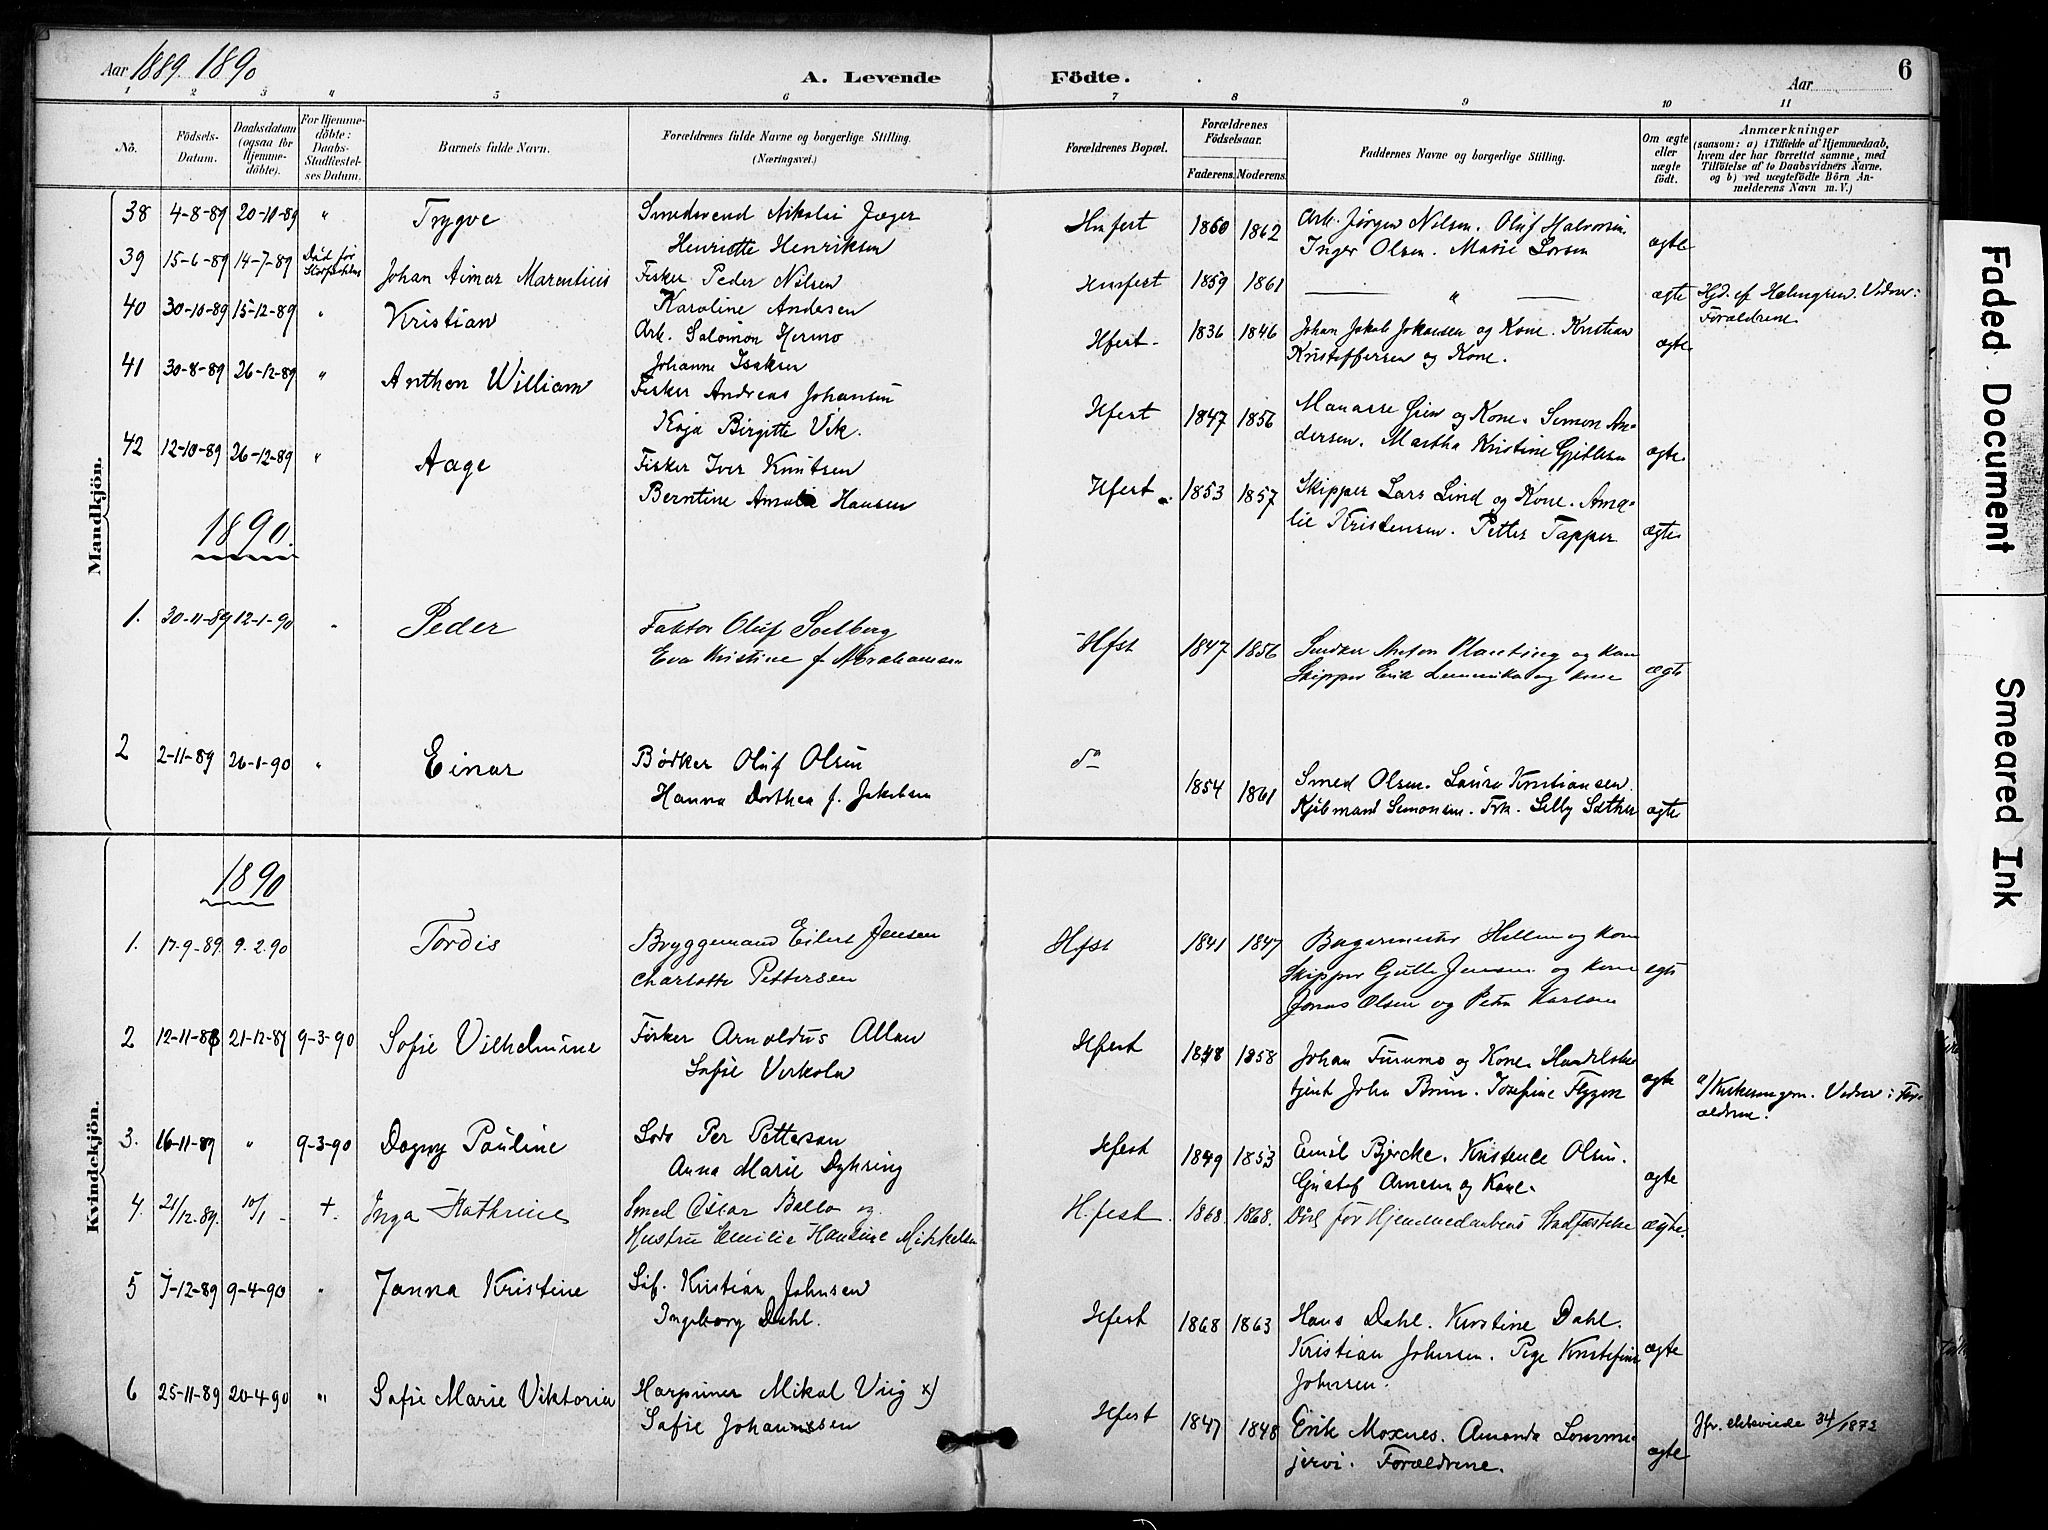 Aar 1889. 1890
A. Levende Födte.
Aar
6
1 2 3 4 5 6 7 8 9 10 11
No.
Födsels-Datum.
Daabsdatum (ogsaa for Hjemme-döbte).
For Hjemme-döbte: Daabs-Stadfæstel-ses Datum.
Barnets fulde Navn.
Forældrenes fulde Navne og borgerlige Stilling. (Næringsvei.)
Forældrenes Bopæl.
Forældrenes Födselsaar.
Faderens. Moderens.
Faddernes Navne og borgerlige Stilling.
Om ægte eller uægte födt.
Anmærkninger
(saasom: a) i Tilfælde af Hjemmedaab, hvem der har forrettet samme, med Tilföielse af to Daabsvidners Navne, og b) ved uægtefödte Börn An-melderens Navn m. V.)
Mandkjön.
38 4-8-89 20-10-89 " Trygve Smedsvend Nikolai Jæger
Henriette Henriksen
Hmfest 1860 1862 Arb. Jørgen Nilsen. Oluf Halvorsen
Inger Olsen. Marie Larsen ægte
39 15-6-89 14-7-89 Død før Johan Aimar Marentius Fisker Peder Nilsen
Karoline Andersen
Hmfest 1859 1861 — " — ægte Hjd. af Holmgren. Vidner:
Forældrene
40 30-10-89 15-12-89 " Kristian Arb. Salomon Hermo
Johanne Isaksen
Hfest. 1836 1846 Johan Jakob Johansen og Kone. Kristian
Kristoffersen og Kone. ægte
41 30-8-89 26-12-89 " Anthon William Fisker Andreas Johansen
Kaja Birgitte Vik.
Hfest 1847 1856 Manasse Gien og Kone. Simon An-
dersen. Martha Kristine ægte
42 12-10-89 26-12-89 " Aage Fisker Iver Knutsen
Berntine Amalia Hansen
Hfest. 1853 1857 Skipper Lars Lind og Kone. Ama-
lie Kristensen. Petter Tapper ægte
1890.
1. 30-11-89 12-1-90 " Peder Faktor Oluf Solberg
Eva Kristine f. Abrahamsen
Hfst 1847 1856 Snedker Anton Planting og Kone
Skipper Erik og Kone ægte
2 2-11-89 26-1-90 " Einar Bødker Oluf Olsen
Hanna Dorthea f. Jakobsen
do 1854 1861 Smed Olsen. Laura Kristiansen.
Kjøbmand Simonsen. Frk. Lilly Sæther ægte
Kvindekjön.
1890
1. 17-9-89. 9.2.90 Tordis Bryggemand Eilert Jensen
Charlotte Pettersen
Hfst 1841 1847 og Kone
Skipper Jensen og Kone
Jonas Olsen og Petra Karlsen egte
2 12-11-88 21-12-89 9-3-90 Sofie Vilhelmine Fisker Arnoldus Allan
Sofie Virkola
Hfest 1848 1858 Johan Furumo og Kone. Handelsbe-
tjent John Bruun. Josefine Flygen ægte a) Vidner: For-
ældrene.
3. 16-11-89 " 9-3-90 Dagny Pauline Lods Per Petterson
Anna Marie Dyhring
Hfest 1849 1853 Emil Bjercke. Kristence Olsen.
Gustaf Arnesen og Kone. ægte
4. 21/12-89. 10/1 - +. Inga Kathrine Smed Oskar Ballo og
Hustru Emilie Hansine Mikkelsen
H.fest. 1868. 1868. Död for Hjemmedaabens Stadfæstelse ægte.
5 7-12-89 9-4-90 " Janna Kristine Kristian Johnsen
Ingeborg Dahl.
Hfest 1868 1863 Hans Dahl. Kristine Dahl.
Kristian Johnsen. Pige Kristofine
Johnsen. ægte
6 25-11-89 20-4-90 " Sofie Marie Viktoria Harpuner Mikal Viig x)
Sofie Johannssen
Hfest 1847 1848 Erik Moxnes. Amanda Lommi-
jervi. Forældrene. ægte Jfr. ekteviede 34/1872
Faded Document
Smeared Ink